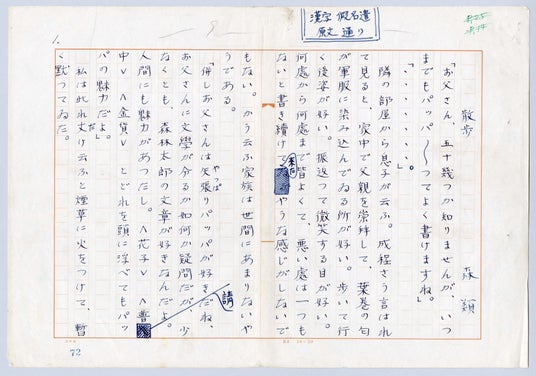 漢字 假名遣
原文通り
散歩
森 類
「お父さん、五十幾つか知りませんが、いつ
までもパッパ〱つてよく書けますね」
「・・・・・・」。
隣の部屋から息子が云ふ。成程さう言はれ
て見ると、家中で父親を崇拝して、葉巻の匂
が軍服に染み込んでゐる所が好い。歩いて行
く後姿が好い。振返つて微笑する目が好い。
何處から何處まで皆よくて、悪い處は一つも
ないと書き續けて来たやうな感じがしないで
もない。かう云ふ家族は世間にあまりないや
うである。
「併しお父さんは矢張りパッパが好きだね、
やっぱ
お父さんに文學が分るか如何か疑問だが、少
なくとも、森林太郎の文章が好きなんだよ。
人間にも魅力があつたし。∧花子∨ ∧普請
中∨ ∧金貨∨ とどれを頭に浮べてもパッ
パの魅力だよ。」
私は此れ丈け云ふと煙草に火をつけて、暫
く黙つてゐた。
1.
72